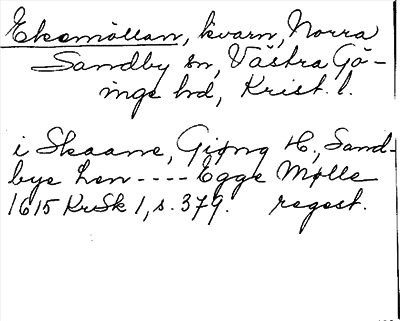 Eksmöllan, kvarn, Norra
Sandby sn, Västra Gö-
inge hd, Krist. l.
i Skaane, Giøng H., Sand-
bye Len ---- Egge Mølle
1615 KrSk 1, s. 379. regest.